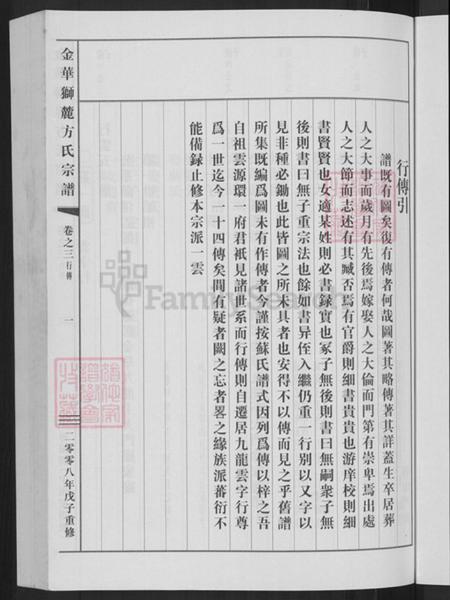 行傳引
譜既有圖矣復有傳者何哉圖著其略傳著其詳蓋生卒居葬
人之大事而歲月有先後焉嫁娶人之大倫而門第有崇卑焉出處
人之大節而志述有其臧否焉有官爵則細書貴貴也游庠校則細
書賢賢也女適某姓則必書錄實也冢子無後則書曰無嗣衆子無
後則書曰無子重宗法也餘如書异侄入繼仍重一行別以又字以
見非種必鋤也此皆圖之所未具者也安得不以傳而見之乎舊譜
所集既編爲圖未有作傳者今謹按蘇氏譜式因列爲傳以梓之吾
自祖雲源環一府君祇見諸世系而行傳則自遷居九龍雲字行尊
爲一世迄今一十四傳矣間有疑者闕之忘者畧之緣族派蕃衍不
能備録止修本宗派一雲
金華獅麓方氏宗譜
卷之三 行傳
一
二零零八年戊子重修
FamilySearch